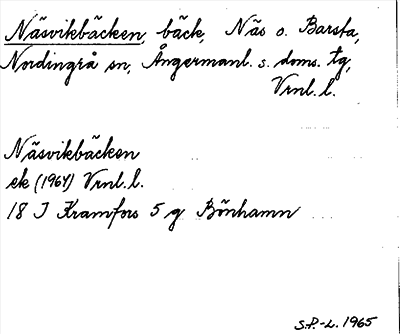 Näsvikbäcken, bäck, Näs o. Barsta,
Nordingrå sn, Ångermanl. s. doms. tg,
Vrnl. l.
Näsvikbäcken
ek (1964) Vrnl. l.
18 I Kramfors 5 g Bönhamn
S.P.-L. 1965